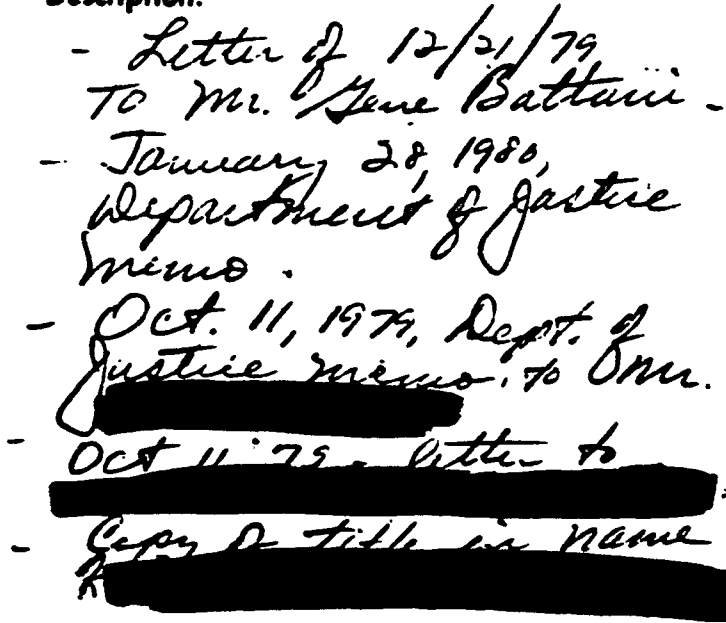 Description:
- Letter of 12/21/79
To Mr. Gene Battani -
- January 28, 1980,
Department of Justice
memo.
- Oct. 11, 1979, Dept. of
Justice memo. to Mr.
- Oct 11 '79 - letter to
- Copy of title in name